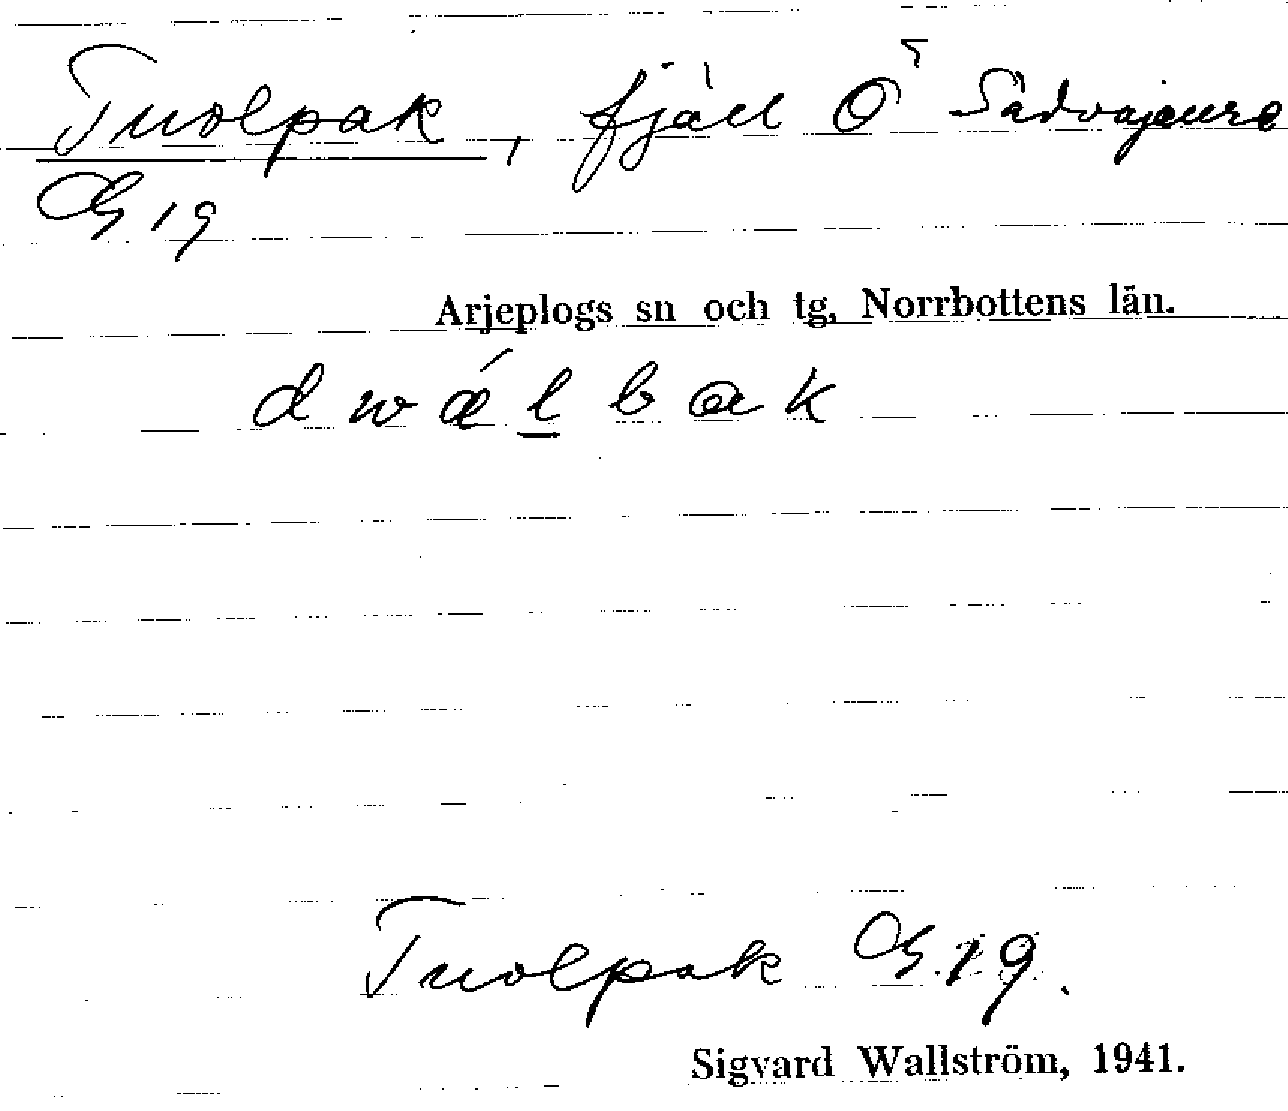 Tuolpak, fjäll Ö Sädvajaure
G 19
Arjeplogs sn och tg, Norrbottens län.
Tuolpak G 19.
Sigvard Wallström, 1941.